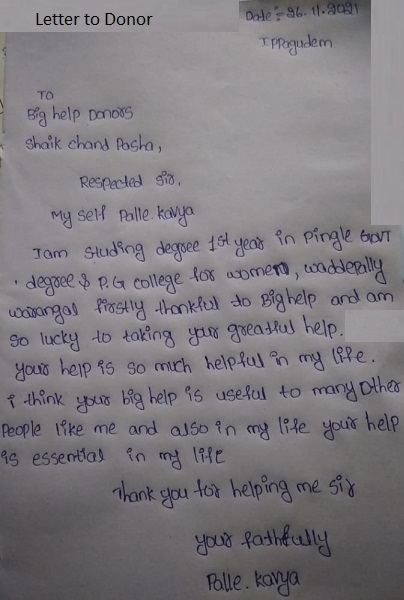 Letter to Donor
Date:- 26.11.2021
I PRagudem
TO
Big help Donors
Shaik chand Pasha,
Respected Sir,
My self Palle. kavya
I am studing degree 1st year in Pingle GOVT
degree & P.G college for women, waddepally
warangal firstly thankful to Bighelp and am
so lucky to taking your greatful help.
your help is so much helpful in my life.
i think your big help is useful to many other
People like me and also in my life your help
is essential in my life
Thank you for helping me sir
your faithfully
Palle. kavya